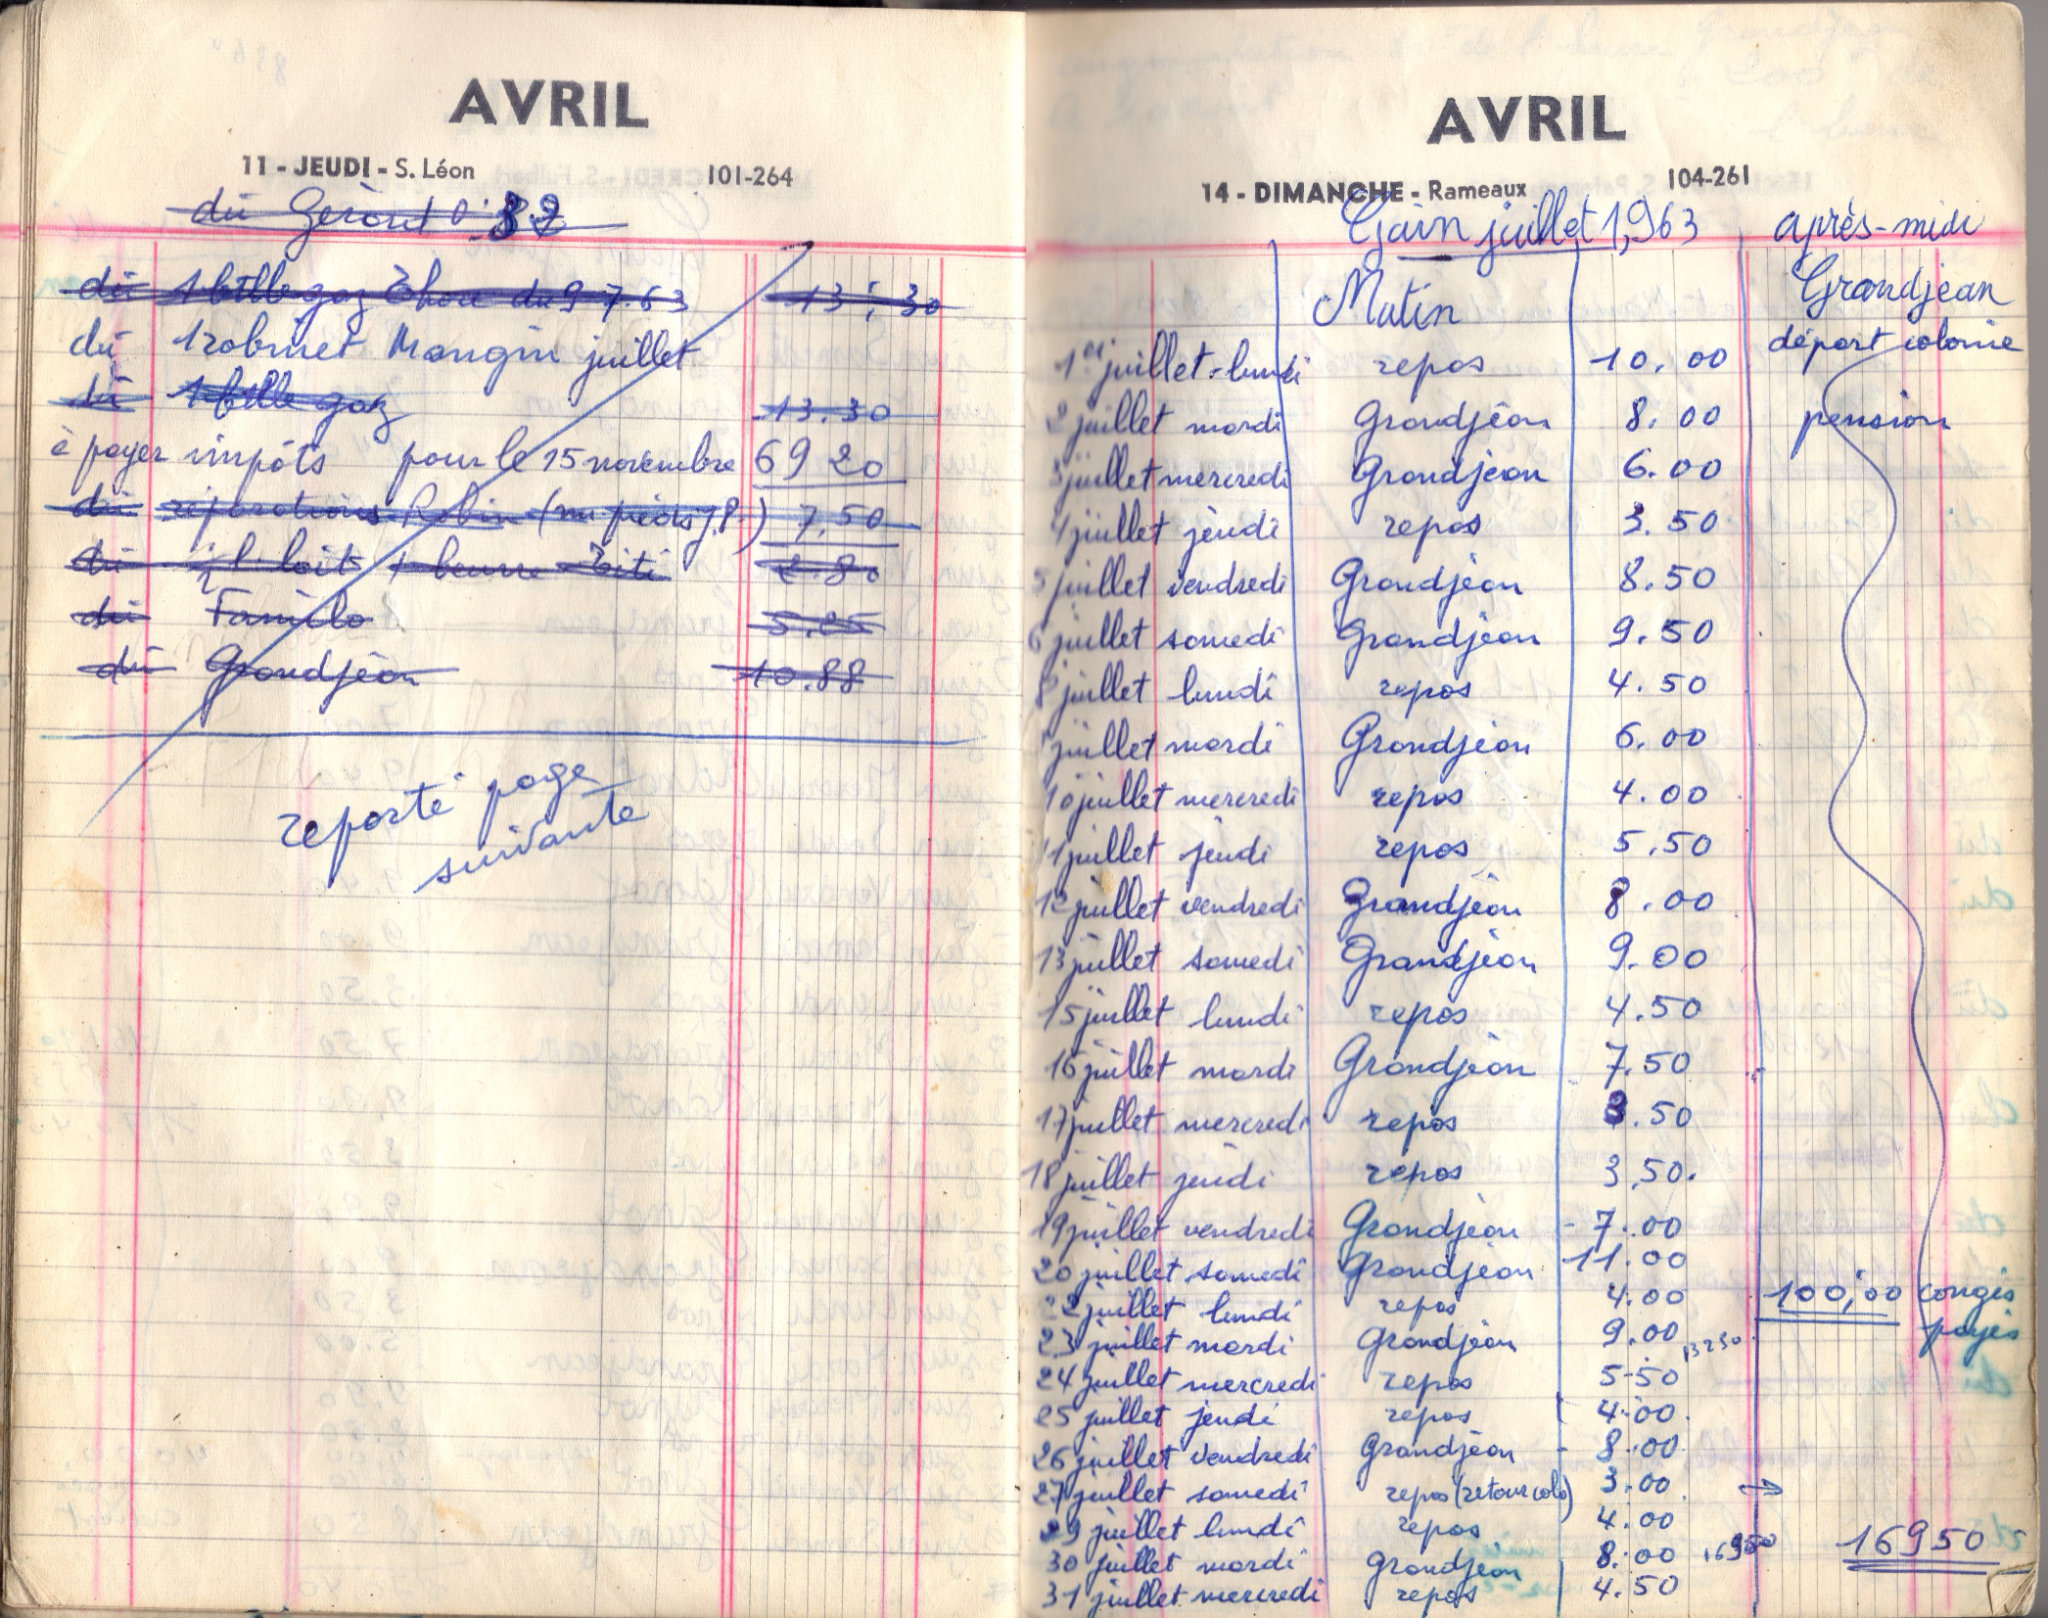 AVRIL
11 - JEUDI - S. Léon 101-264
dû Gérard 0.82
dû 1 btlle gaz du 9 7.63 13,30
dû 1 robinet Mangin juillet
dû 1 btlle gaz 13.30
à payer impôts pour le 15 novembre 69 20
dû réparations Robin (nu pieds J.P.) 7,50
dû 1 l. lait 1 beurre 2.80
dû Familo 5.25
dû Grandjean 10.88
reporté page
suivante
AVRIL
14 - DIMANCHE - Rameaux 104-261
Gain juillet 1963 après-midi
Matin Grandjean
départ colonie
1er juillet - lundi repos 10.00
2 juillet mardi Grandjean 8.00 pension
3 juillet mercredi Grandjean 6.00
4 juillet jeudi repos 3.50
5 juillet vendredi Grandjean 8.50
6 juillet samedi Grandjean 9.50
8 juillet lundi repos 4.50
juillet mardi Grandjean 6.00
10 juillet mercredi repos 4.00
11 juillet jeudi repos 5.50
12 juillet vendredi Grandjean 8.00
13 juillet samedi Grandjean 9.00
15 juillet lundi repos 4.50
16 juillet mardi Grandjean 7.50
17 juillet mercredi repos 3.50
18 juillet jeudi repos 3,50.
19 juillet vendredi Grandjean - 7.00
20 juillet samedi Grandjean 11.00
22 juillet lundi repos 4.00 100,00 congés
23 juillet mardi Grandjean 9.00 13250 payés
24 juillet mercredi repos 5-50
25 juillet jeudi repos 4.00
26 juillet vendredi Grandjean - 8.00
27 juillet samedi repos (retour colo) 3.00 →
29 juillet lundi repos 4.00
30 juillet mardi Grandjean 8.00 16950 16950
31 juillet mercredi repos 4.50